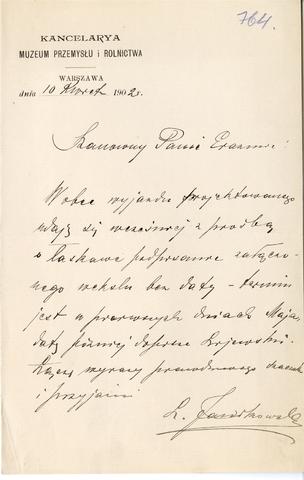 764.
KANCELARYA
MUZEUM PRZEMYSŁU i ROLNICTWA
WARSZAWA
dnia 10 Kwiet 1902 r.
Szanowny Panie Erazmie!
Wobec wyjazdu projektowanego
udaję się wcześniej z prośbą
o łaskawe podpisanie załączo-
nego wekslu bez daty - termin
jest w pierwszych dniach Maja,
datę później dopisze
Łączę wyrazy prawdziwego szacunku
i przyjaźni